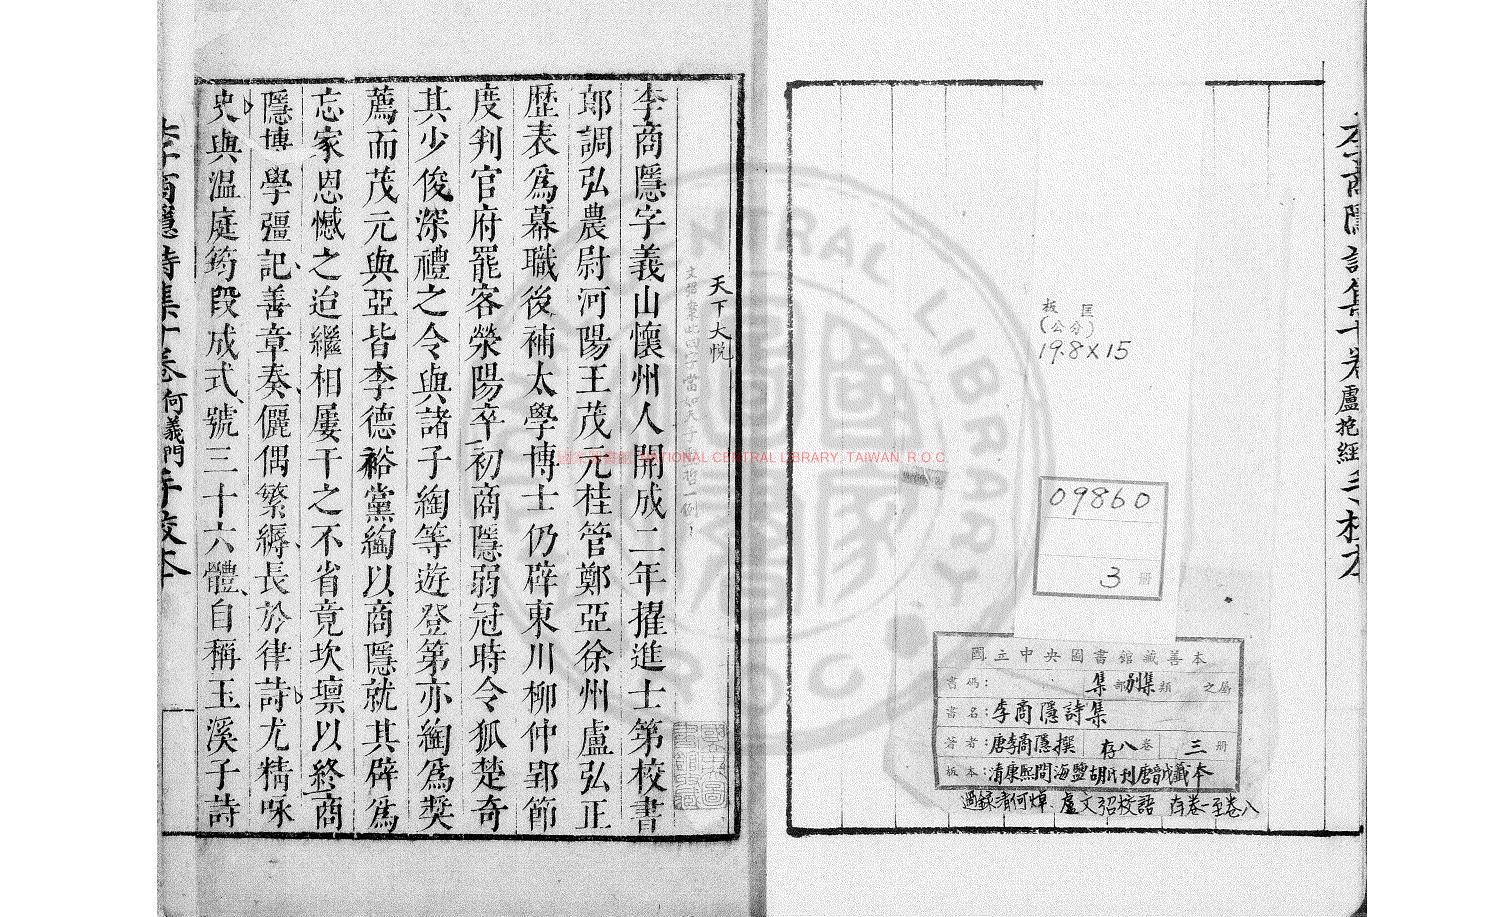 李商隱詩集十卷盧抱經手校本
板匡
(公分)
19.8×15
09860
3冊
國立中央圖書館藏善本
書碼:集部別集類之屬
書名:李商隱詩集
著者:唐李商隱撰 存八卷 三冊
板本:清康熙間海鹽胡氏刊唐音戊籤本
過錄清何焯、盧文弨校語 存卷一至卷八
天下大悅
李商隱字義山懷州人開成二年擢進士第校書
郎調弘農尉河陽王茂元桂管鄭亞徐州盧弘正
歷表爲幕職後補太學博士仍辟東川柳仲郢節
度判官府罷客滎陽卒初商隱弱冠時令狐楚奇
其少俊深禮之令與諸子綯等遊登第亦綯爲奬
薦而茂元與亞皆李德裕黨綯以商隱就其辟爲
忘家恩憾之迨繼相屢干之不省竟坎壈以終商
隱博學彊記善章奏儷偶繁縟長於律詩尤精咏
史與溫庭筠段成式號三十六體自稱玉溪子詩
李商隱詩集十卷何義門手校本
NATIONAL CENTRAL LIBRARY, TAIWAN, R.O.C
CENTRAL LIBRARY
R O C